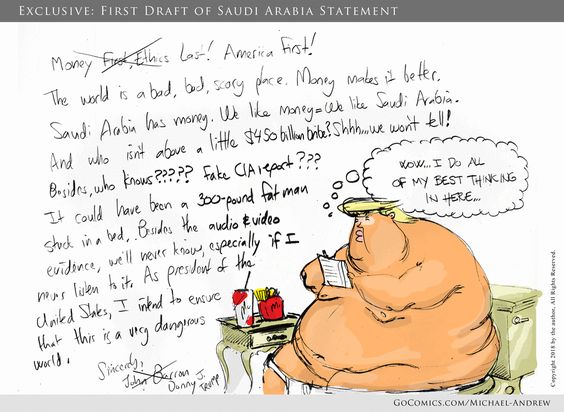 EXCLUSIVE: FIRST DRAFT OF SAUDI ARABIA STATEMENT
Money First, Ethics Last! America First!
The world is a bad, bad, scary place. Money makes it better.
Saudi Arabia has money. We like money = We like Saudi Arabia.
And who isn't above a little $450 billion bribe? Shhh...we won't tell!
Besides, who knows????? Fake CIA report???
It could have been a 300-pound fat man
stuck in a bed. Besides the audio & video
evidence, we'll never know, especially if I
never listen to it. As president of the
United States, I intend to ensure
that this is a very dangerous
world.
Sincerely,
John Barron
Donny J. Trump
WOW... I DO ALL
OF MY BEST THINKING
IN HERE...
M
Copyright 2018 by the author, All Rights Reserved.
GOCOMICS.COM/MICHAEL-ANDREW